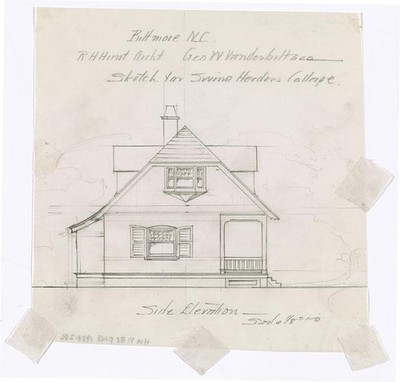 Biltmore N.C.
R H Hunt Archt Geo W Vanderbilt
Sketch for Swine Herders Cottage.
Side Elevation
Scale